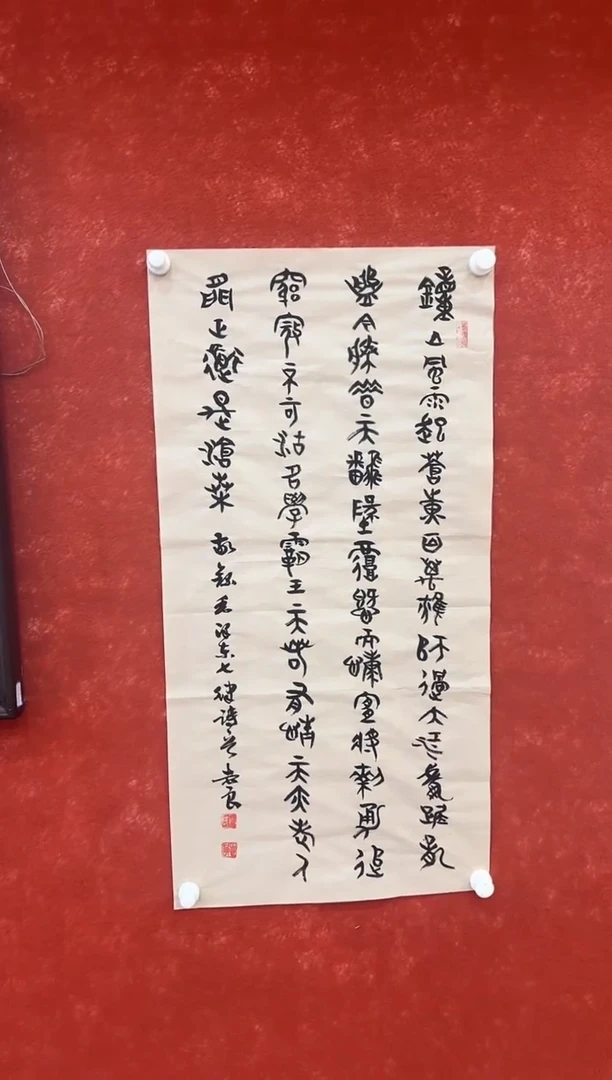 鐘山風雨起蒼黄百萬雄師過大江虎踞龍
盤今勝昔天翻地覆慨而慷宜將剩勇追
窮寇不可沽名學霸王天若有情天亦老人
間正道是滄桑 敬錄毛泽东七律詩一首